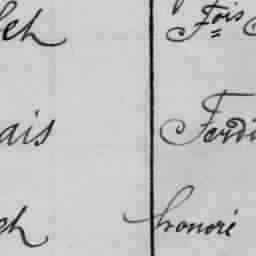 leh Fois
ais Ferdi
ch honoré